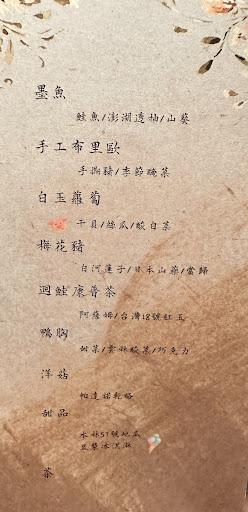 墨魚
鮭魚/澎湖透抽/山葵
手工布里歐
手撕豬/季節醃菜
白玉蘿蔔
干貝/絲瓜/酸白菜
梅花豬
白河蓮子/日本山藥/當歸
迴鮭康普茶
阿薩姆/台灣18號紅玉
鴨胸
甜菜/雲林酸菜/巧克力
洋菇
帕達諾乾酪
甜品
水林57號地瓜
豆漿冰淇淋
茶